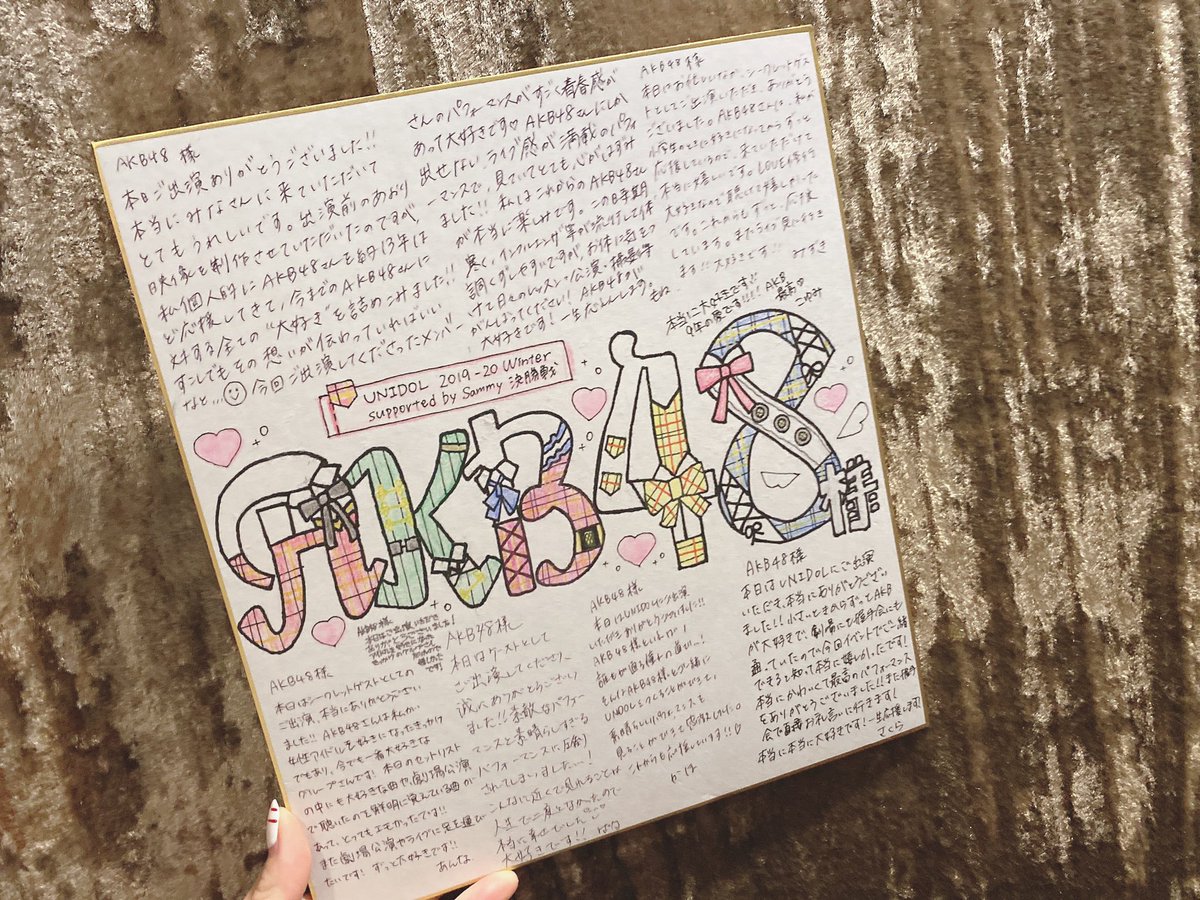 AKB48 様
本日ご出演ありがとうございました!!
本当にみなさんに来ていただいて
とてもうれしいです。出演前のあおり
映像を制作させていただいたのですべ、
私個人的にAKB48さんを約13年ほ
ど応援してきて、今までのAKB48さんに
対する全ての"大好き"を詰めこみました!!
すこしでもその想いが伝わっていればいい
なと…今回ご出演してくださったメンバー
さんのパフォーマンスがすごく青春感が
あって大好きです♡AKB48さんにしか
出せないライブ感が満載のパフォ
ーマンスで、見ていてとても心がはずみ
ました!! 私はこれからのAKB48さん
が本当に楽しみです。この時期
寒く、インフルエンザ等が流行して体
調くずしやすいですが、お体に気をつ
けて日々のレッスン・公演・撮影等
がんばってください! AKB48が
大好きです! 一生応えんします。
AKB48 様
本日はお忙しいなか、シークレットゲス
トとしてご出演いただき、ありがとう
ございました。AKB48さんは、私が
小学生のときに好きになってからずっと
応援しているので、来ていただけて
本当に嬉しいです。LOVE修行
大好きなので聴けて嬉しかった
です。これからもずっと、応援
しています。またライブ見に行き
ます!! 大好きです!! みずき
本当に大好きです♡
9年の愛です!!!! AKB
最高♡ こゆみ
UNIDOL 2019-20 Winter
supported by Sammy 決勝戦
AKB48様
AKB48様
本日はシークレットゲストとしての
ご出演、本当にありがとうござい
ました!! AKB48さんは私が
女性アイドルを好きになったきっかけ
でもあり、今でも一番大好きな
グループさんです! 本日のセットリスト
の中にも大好きな曲や、劇場公演
で聴いたので鮮明に覚えている曲が
あって、とってもエモかったです!!
また劇場公演やライブに足を運び
たいです! ずっと大好きです!! あんな
AKB48様
本日はご出演いただき
ありがとうございました!
AKB48様
本日はゲストとして
ご出演してくださり、
誠にありがとうござい
ました!! 素敵なパフォー
マンスと素晴らしすぎる
パフォーマンスに圧倒
されてしまいました…!
こんなに近くで見れることは
人生で二度となかったので
本当に幸せでした
大好きでーす!! はる
AKB48様
本日はUNIDOLにご出演
いただきありがとうございました!!
AKB48様といえば!
誰もが知る憧れの的…!!
そんなAKB48様と一緒に
UNIDOLをつくることができて、
素晴らしいパフォーマンスも
見ることができて感激でした。
これからも応援しています!!♡
AKB48様
本日はUNIDOLにご出演
いただき、本当にありがとうござい
ました!! 小さいときからずっとAKB
が大好きで、劇場にも握手会にも
通っていたので今回イベントでご一緒
できると知って本当に嬉しかったです!
本当にかわいくて最高のパフォーマンス
をありがとうございました!! また握手
会で直接お礼言いに行きます!
本当に本当に大好きです! 一生応援します!
さくら